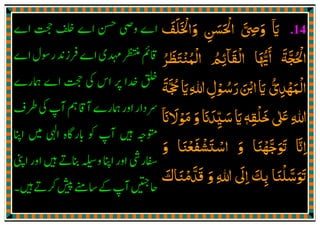 14. یَا وَصِیَّ الْحَسَنِ وَالْخَلَفَ
الْحُجَّةَ اَیُّهَا الْقَآئِمُ الْمُنْتَظَرُ
الْمَهْدِیُّ یَا ابْنَ رَسُوْلِ اللهِ یَا حُجَّةَ
اللهِ عَلٰی خَلْقِهٖ یَا سَیِّدَنَا وَ مَوْلَانَا
اِنَّا تَوَجَّهْنَا وَ اسْتَشْفَعْنَا وَ
تَوَسَّلْنَا بِكَ اِلَی اللهِ وَ قَدَّمْنَاكَ
اے وصی حسن اے خلف حجت اے
قائم منتظر مہدی اے فرزند رسول اے
خلق خدا پر اس کی حجت اے ہمارے
سردار اور ہمارے آقا ہم آپ کی طرف
متوجہ ہیں آپ کو بارگاہ الٰہی میں اپنا
سفارشی اور اپنا وسیلہ بناتے ہیں اور اپنی
حاجتیں آپ کے سامنے پیش کرتے ہیں۔